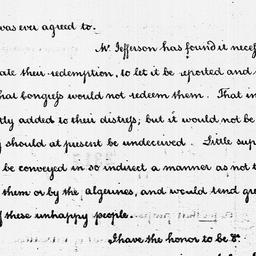 was ever agreed to.
Mr. Jefferson has found it necef
ate their redemption, to let it be reported and
hat Congrefs would not redeem them. That in
tly added to their distrefs, but it would not be
y should at present be undeceived. Little sup
be conveyed in so indirect a manner as not t
them or by the algerines, and would tend gre
f these unhappy people.
I have the honor to be &.